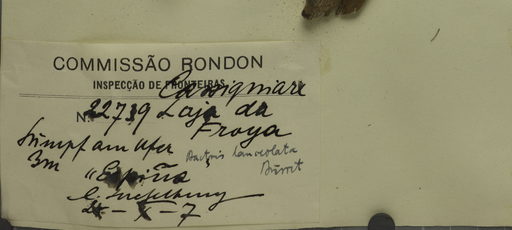 COMMISSÃO RONDON
INSPECÇÃO DE FRONTEIRAS
Cassiquiare
N. 22739 Laja da
Froya
Sumpf am Ufer
3m
Bactris lanceolata
Burret
"Espina"
24-X-7